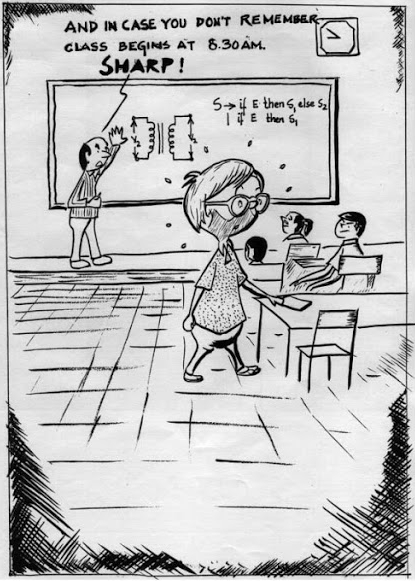 AND IN CASE YOU DON'T REMEMBER
CLASS BEGINS AT 8.30AM.
SHARP!
S → if E then S₁ else S₂
| if E then S₁
V₂
V₁